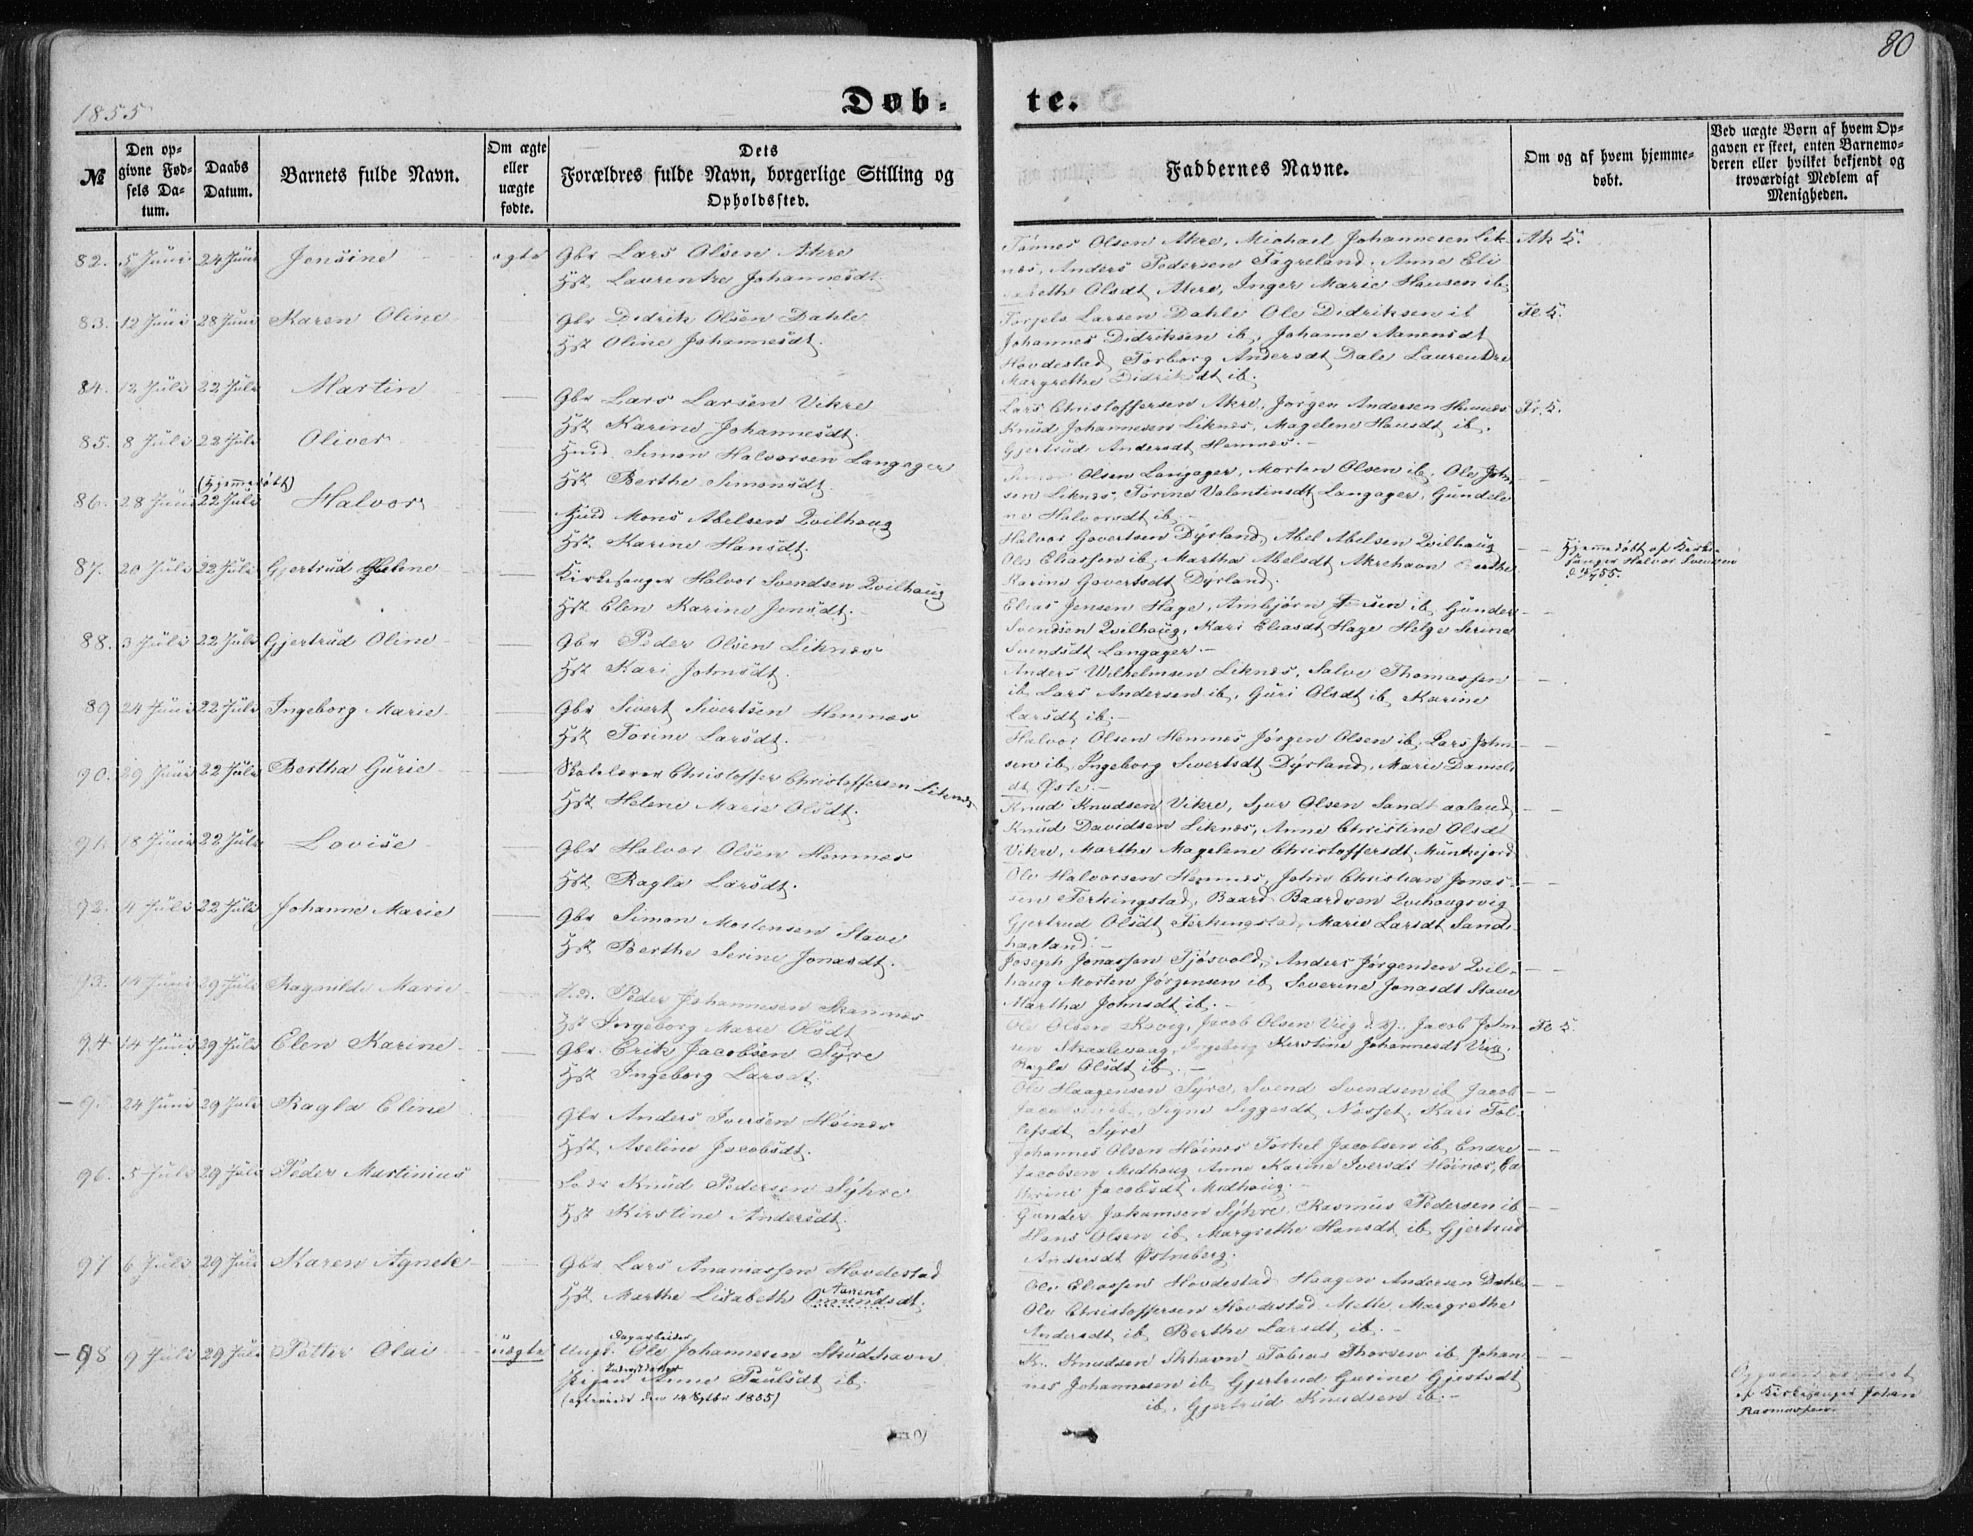 80
1855
Døb-
te.
№
Den op-
givne Fød-
sels Da-
tum.
Daabs
Datum.
Barnets fulde Navn.
Om ægte
eller
uægte
fødte.
Dets
Forældres fulde Navn, borgerlige Stilling og
Opholdssted.
Faddernes Navne.
Om og af hvem hjemme-
døbt.
Ved uægte Børn af hvem Op-
gaven er skeet, enten Barnemo-
deren eller hvilket bekjendt og
troværdigt Medlem af
Menigheden.
82. 5 Juni 24 Juni Jensine ægte Gbr Lars Olsen Akre
Hst Laurentze Johannesdt.
Tønnes Olsen Akre, Michael Johannesen Lik-
nes, Anders Pedersen Fagreland, Anne Eli
sabeth Olsdt Akre, Inger Marie Hansen ib.
83. 12 Juni 28 Juni Karen Oline Gbr Didrik Olsen Dahle
Hst Oline Johannesdt.
Torjels Larsen Dahle Ole Didriksen ib
Johannes Didriksen ib, Johanne Aanensdt
Hovdestad Torborg Andersdt Dale Laurentze
Margrethe Didriksdt ib.
84. 12 Juli 22 Juli Martin Gbr Lars Larsen Vikre
Hst Karine Johannesdt.
Lars Christoffersen Akre, Jørgen Andersen
Knud Johannesen Liknes, Magelene Hansdt ib.
Gjertrud Andersdt Hemnes.
85. 8 Juli 22 Juli Oliver Huusmd. Simon Halvorsen Langager
Hst Berthe Simonsdt.
Olsen Langager, Morten Olsen ib, Ole Joh
sen Liknes, Torine Valentinsdt Langager, Gundele
ne Halvorsdt ib.
(Hjemmedøbt)
86. 28 Juni 22 Juli Halvor Huusmd Mons Abelsen Qvilhaug
Hst Karine Hansdt.
Halvor Govertsen Dyrland, Abel Abelsen Qvilhaug
Ole Eliassen ib, Martha Abelsdt Akrehavn Berthe
Karine Govertsdt Dyrland.
Hjemmedøbt af Kirke-
sanger Halvor Svendsen
87. 20 Juli 22 Juli Gjertrud Helene Kirkesanger Halvor Svendsen Qvilhaug
Hst Elen Karine Jensdt.
Elias Jensen Hage, Ambjørn Jensen ib, Gunder
Svendsen Qvilhaug, Kari Eliasdt Hage Helge Serine
Svendsdt Langager.
88. 3 Juli 22 Juli Gjertrud Oline Gbr Peder Olsen Liknes
Hst Kari Johnsdt.
Anders Wilhelmsen Liknes, Salve Thomassen
ib Lars Andersen ib, Guri Olsdt ib Karine
Larsdt ib.
89 24 Juni 22 Juli Ingeborg Marie Gbr Sivert Sivertsen Hemnes
Hst Torine Larsdt.
Halvor Olsen Hemnes Jørgen Olsen ib, Lars John
sen ib, Ingeborg Sivertsdt Dyrland, Marie Daniels
dt Øste.
90. 29 Juni 22 Juli Bertha Gurie Skolelærer Christoffer Christoffersen Liknes
Hst Helene Marie Olsdt.
Knud Knudsen Vikre, Sjur Olsen Sandhaaland
Knud Davidsen Liknes, Anne Christine Olsdt
Vikre, Marthe Magelene Christoffersdt Munkejord
91. 18 Juni 22 Juli Lovise Gbr Halvor Olsen Hemnes
Hst Ragla Larsdt.
Ole Halvorsen Hemnes, John Christian Jonas-
sen Ferkingstad, Baard Baardsen Qvilhaugsvig
Gjertrud Olsdt Ferkingstad, Marie Larsdt Sand-
haaland.
92. 4 Juli 22 Juli Johanne Marie Gbr Simon Mortensen Stave
Hst Berthe Serine Jonasdt.
Joseph Jonassen Tjøsvold, Anders Jørgensen Qvil-
haug Morten Jørgensen ib, Severine Jonasdt Stave
Martha Johnsdt ib.
93. 14 Juni 29 Juli Ragnilde Marie Peder Johannesen
Hst Ingeborg Marie Olsdt
Ole Olsen Jacob Olsen Jacob John
sen Skaalevaag, Ingeborg Kirstine Johannesdt
Ragla Olsdt ib.
94 14 Juni 29 Juli Elen Karine Gbr. Erik Jacobsen Syre
Hst Ingeborg Larsdt.
Ole Haagensen Syre, Svend Svendsen ib Jacob
Jacobsen ib, Signe Siggesdt Nesset, Kari Tol-
lefsdt Syre
95 24 Juni 29 Juli Ragla Eline Gbr Anders Iversen Høines
Hst Aseline Jacobsdt.
Johannes Olsen Høines Torkel Jacobsen ib Endre
Jacobsen Medhaug Anne Karine Iversdt Høines,
Jacobsdt Medhaug.
96. 5 Juli 29 Juli Peder Martinius Knud Pedersen Syhre
Hst Kirstine Andersdt.
Gunder Johannsen Syhre, Rasmus Pedersen ib
Hans Olsen ib Margrethe Hansdt ib Gjertrud
Andersdt Østreberg.
97 6 Juli 29 Juli Karen Agnete Gbr Lars Anamassen Hovdestad
Hst Marthe Lisabeth Omundsdt.
Ole Eliassen Hovdestad Haagen Andersen Dahle
Ole Christoffersen Hovdestad Mette Margrethe
Andersdt ib Berthe Larsdt ib.
98 9 Juli 29 Juli Petter Olai uægte Ungk. Ole Johannesen Skudehavn
Dagarbeider
Pigen Anne Paulsdt ib.
K. Knudsen Skhavn Tobias Thorsen ib Johan
nes Johannesen ib Gjertrud Gurine Gjertsdt
ib, Gjertrud Knudsen ib.
af Kirkesanger Johan
Rasmussen